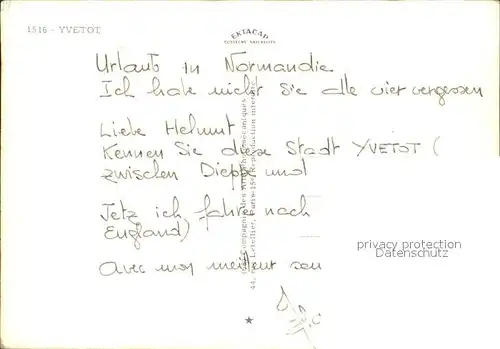 1516 - YVETOT
EKTACAP
Urlaub in Normandie
Ich habe nicht Sie alle vier vergessen
Liebe Helmut
Kennen Sie diese Stadt YVETOT (
zwischen Dieppe und
Jetz ich fahre nach
England)
Avec mon meilleur sou
Compagnie des Arts Photomécaniques
44, rue Letellier, Paris-15e (Reproduction interdite)
privacy protection
Datenschutz